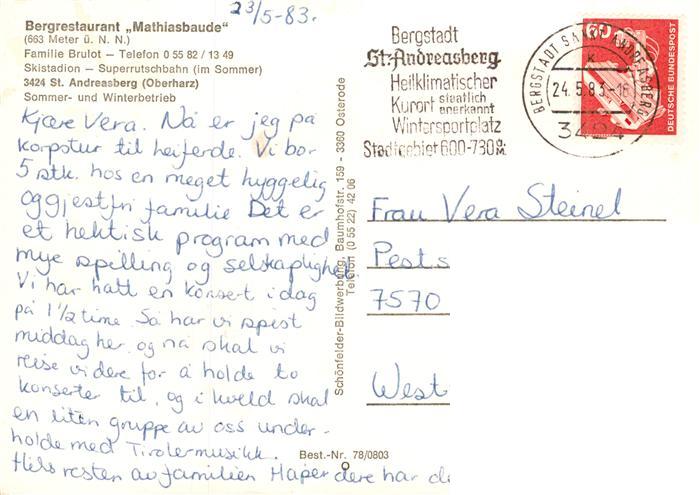 23/5-83.
Bergrestaurant „Mathiasbaude"
(663 Meter ü. N. N.)
Familie Brulot – Telefon 0 55 82 / 13 49
Skistadion – Superrutschbahn (im Sommer)
3424 St. Andreasberg (Oberharz)
Sommer- und Winterbetrieb
Kjære Vera. Nå er jeg på
korpstur til
Vi bor
5 stk. hos en meget hyggelig
og gjestfri familie Det er
et hektisk program med
mye spilling og selskaplighet.
Vi har hatt en konsert i dag
på 1 1/2 time. Så har vi spist
middag her, og nå skal vi
reise videre for å holde to
konserter til, og i kveld skal
en liten gruppe av oss under-
holde med Tirolermusikk.
Hils resten av familien Håper dere har d
Schönfelder-Bildwerbung, Baumhofstr. 159 - 3360 Osterode
Telefon (0 55 22) 42 06
Best.-Nr. 78/0803
Bergstadt
St. Andreasberg
Heilklimatischer
Kurort staatlich anerkannt
Wintersportplatz
Stadtgebiet 600-730 ü.M.
BERGSTADT SANKT ANDREASBERG
k
24.5.83-16
3424
60
DEUTSCHE BUNDESPOST
Frau Vera Steinel
Pests
7570
West